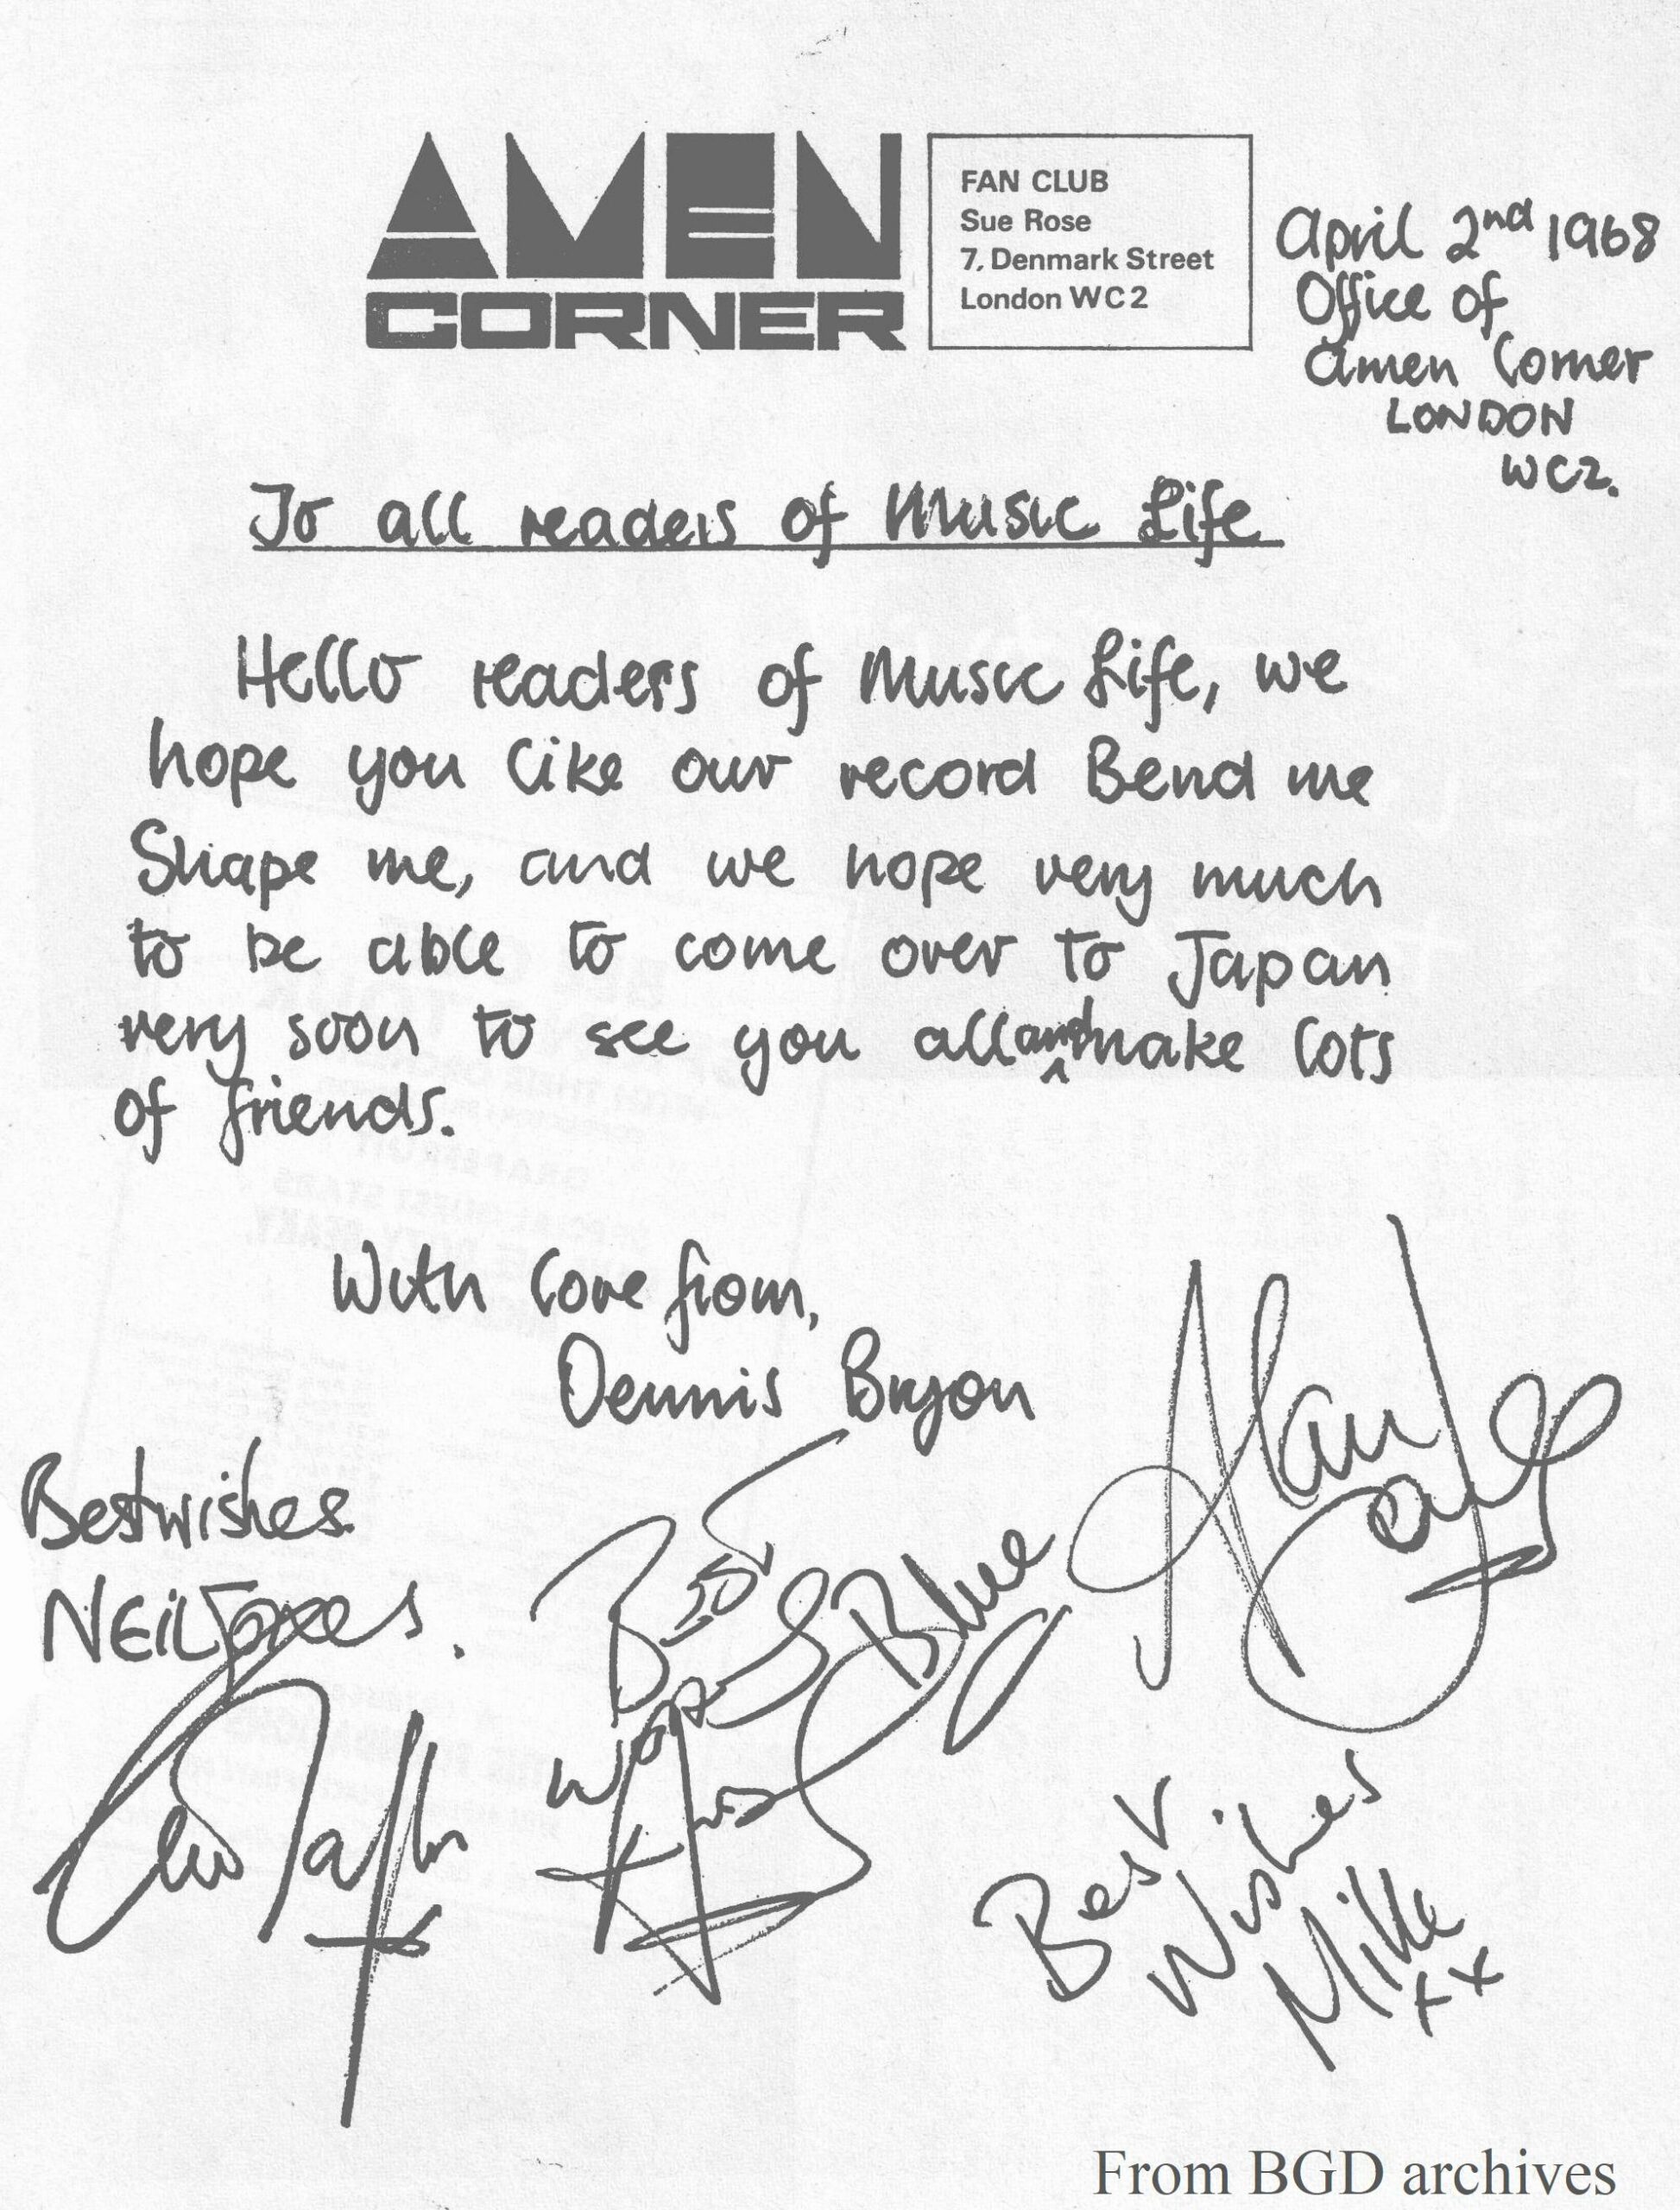 AMEN
CORNER
FAN CLUB
Sue Rose
7, Denmark Street
London WC2
April 2nd 1968
Office of
Amen Corner
LONDON
WC2.
To all readers of Music Life
Hello readers of Music Life, we
hope you like our record Bend me
Shape me, and we hope very much
to be able to come over to Japan
very soon to see you all and make lots
of friends.
With love from,
Dennis Bryon
Best wishes
NEIL Jones.
Best
Blue
Alan
Best
Wishes
Mike
xx
From BGD archives